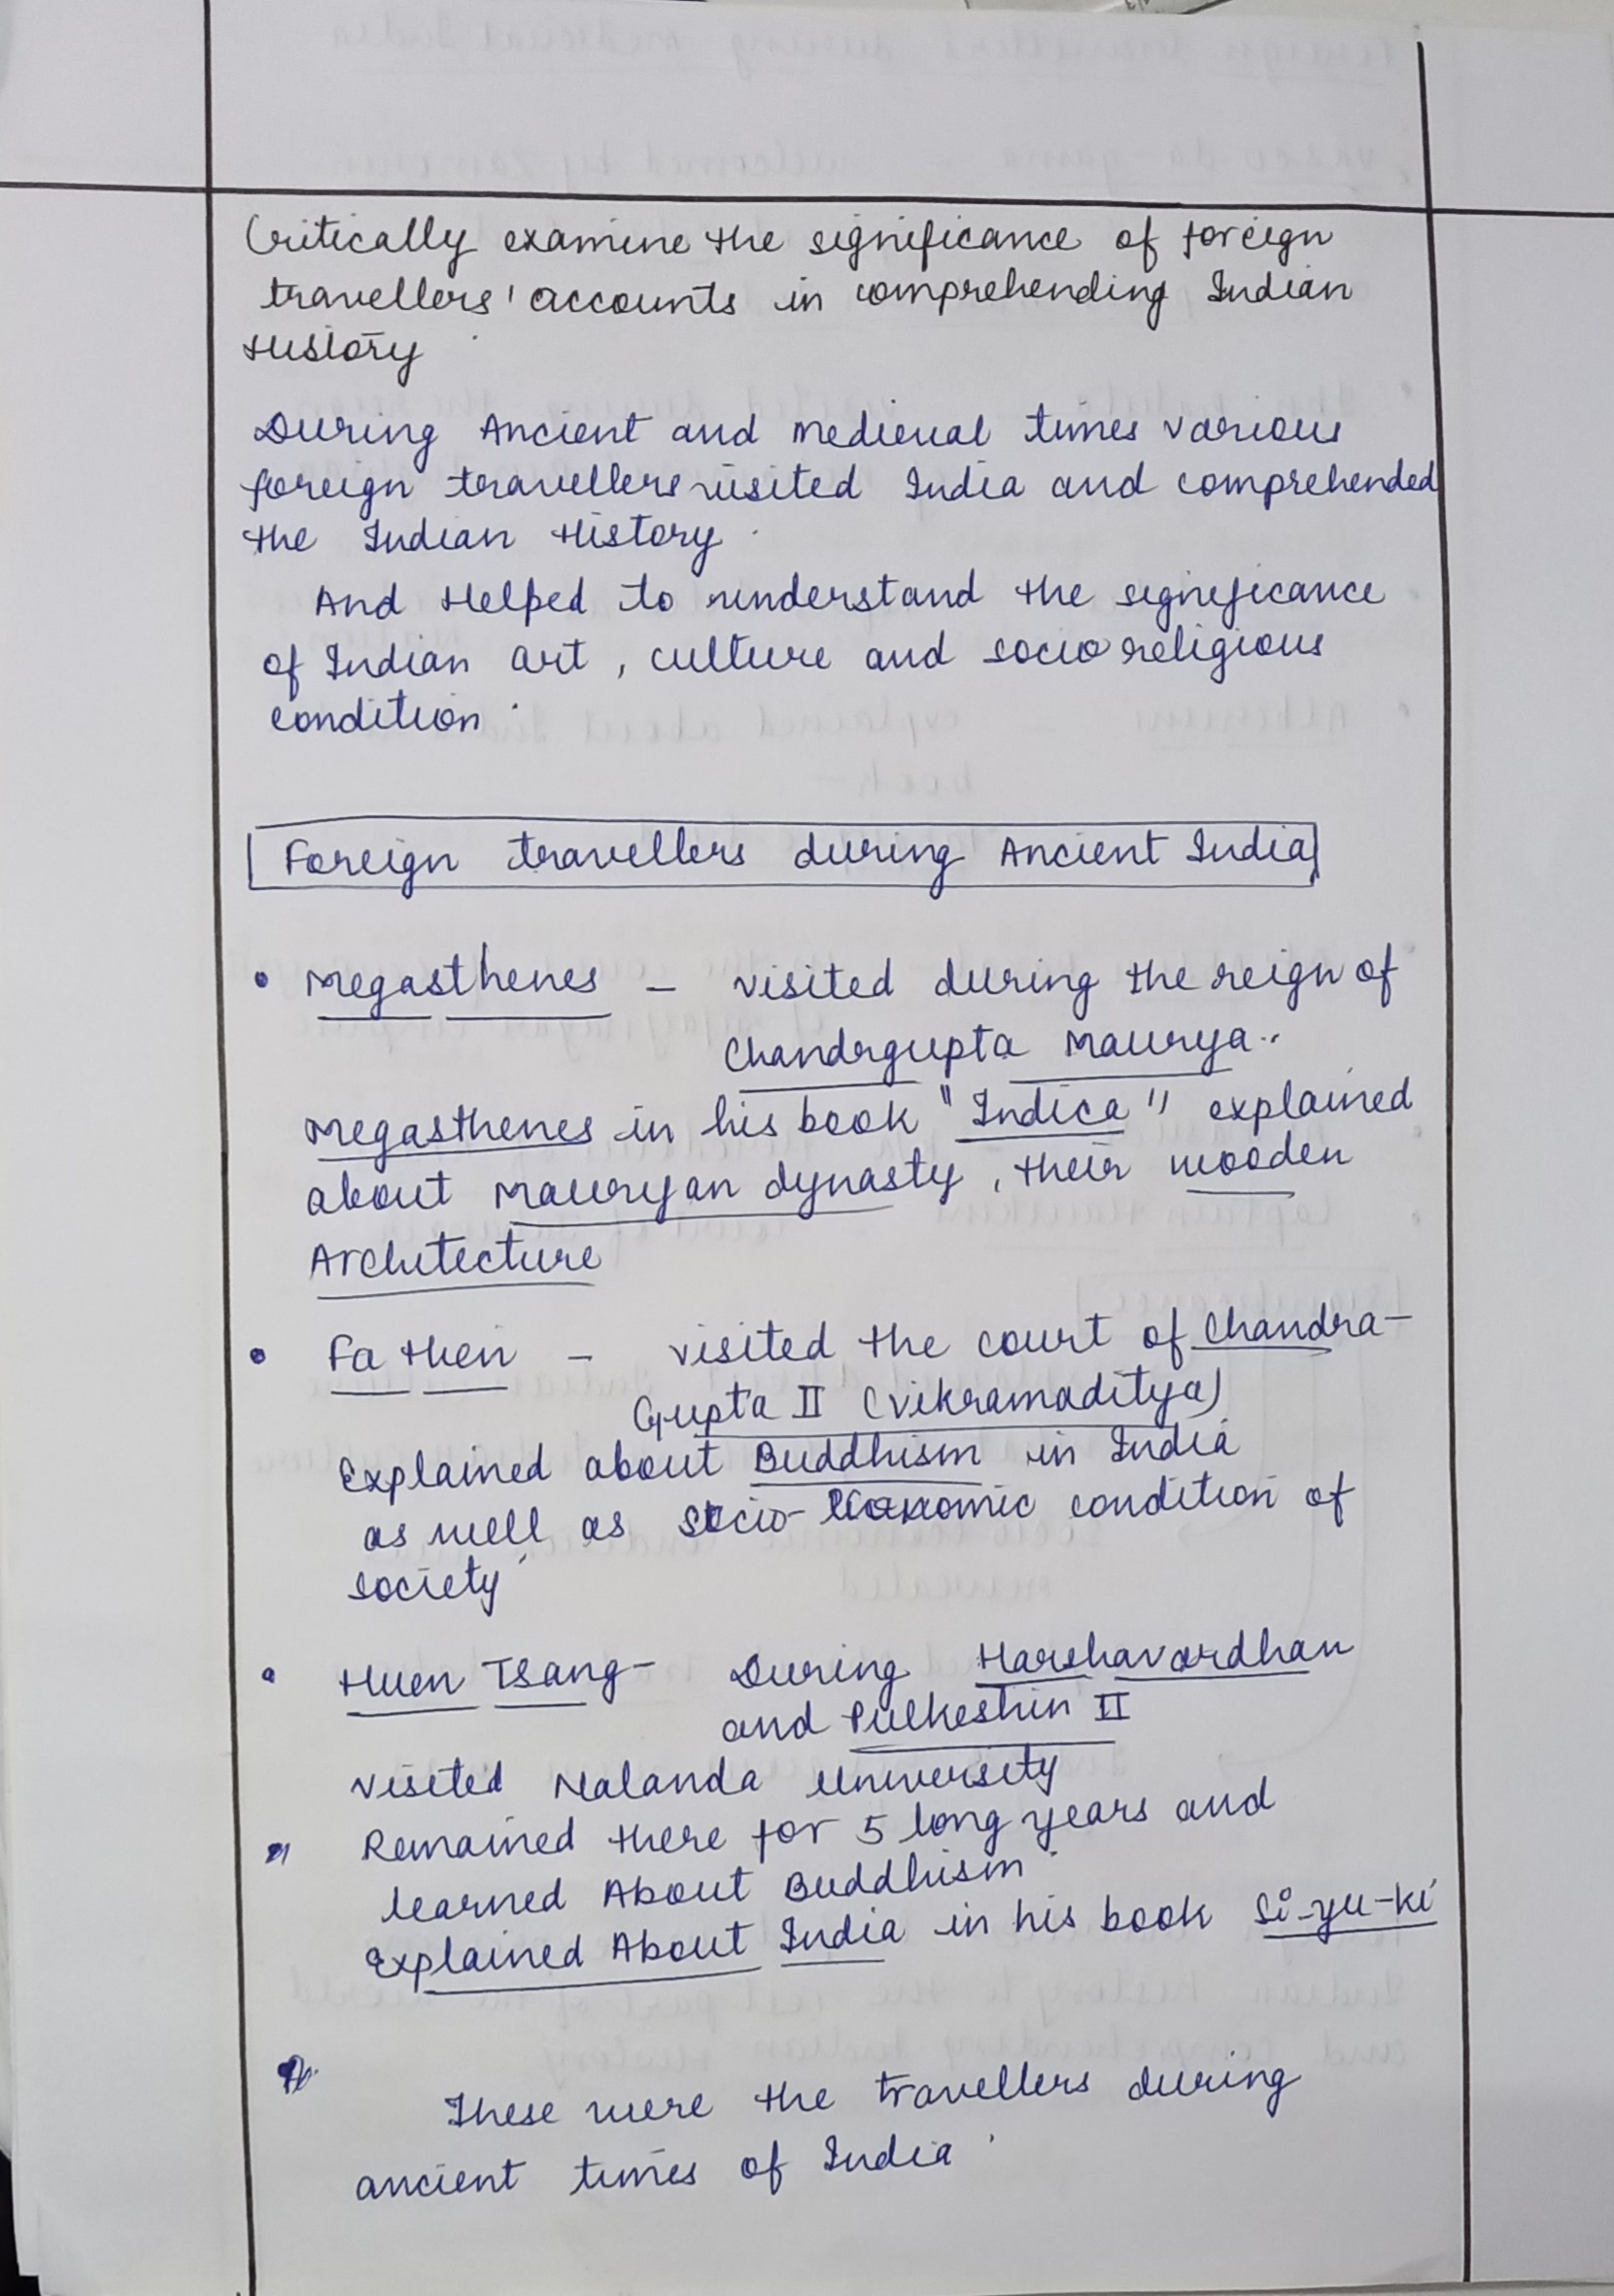 Critically examine the significance of foreign
travellers' accounts in comprehending Indian
History.
During Ancient and medieval times various
foreign travellers visited India and comprehended
the Indian History.
And Helped to understand the significance
of Indian art, culture and socio religious
condition.
Foreign travellers during Ancient India
• Megasthenes - visited during the reign of
Chandrgupta Maurya..
Megasthenes in his book "Indica" explained
about Mauryan dynasty, their wooden
Architecture
• Fa Hien - visited the court of Chandra-
Gupta II (Vikramaditya)
Explained about Buddhism in India
as well as Socio-Economic condition of
society
• Huen Tsang- During Harshavardhan
and Pulkeshin II
Visited Nalanda University
Remained there for 5 long years and
learned About Buddhism.
Explained About India in his book Si-yu-ki
These were the travellers during
ancient times of India.